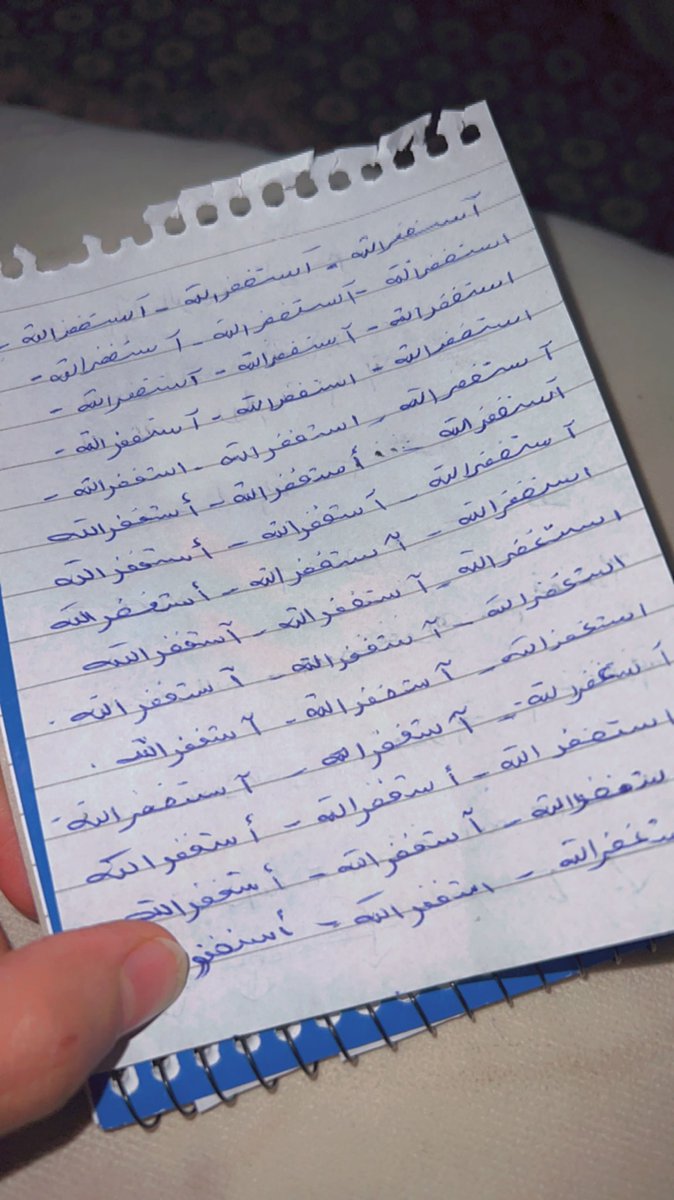 أستغفر الله - أستغفر الله - أستغفر الله -
استغفر الله - أستغفر الله - أستغفر الله -
استغفر الله - أستغفر الله - أستغفر الله -
استغفر الله - استغفر الله - أستغفر الله -
أستغفر الله - استغفر الله - استغفر الله -
أستغفر الله - ... أستغفر الله - أستغفر الله
أستغفر الله - أستغفر الله - أستغفر الله
استغفر الله - أستغفر الله - أستغفر الله
استغفر الله - أستغفر الله - أستغفر الله
استغفر الله - أستغفر الله - أستغفر الله .
استغفر الله - أستغفر الله - أستغفر الله .
أستغفر الله - أستغفر الله - أستغفر الله -
استغفر الله - أستغفر الله - أستغفر الله
ستغفر الله - أستغفر الله - أستغفر الله
ستغفر الله - استغفر الله - أستغفر